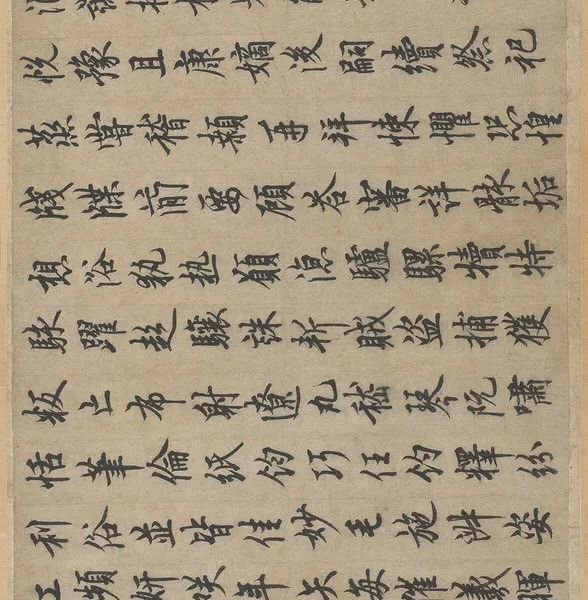 悦豫且康嫡後嗣續祭祀
蒸嘗稽顙再拜悚懼恐惶
牋牒簡要顧答審詳骸垢
想浴執熱願涼驢騾犢特
駭躍超驤誅斬賊盜捕獲
叛亡布射遼丸嵇琴阮嘯
恬筆倫紙鈞巧任釣釋紛
利俗並皆佳妙毛施淑姿
工頻妍咲年矢每催羲暉